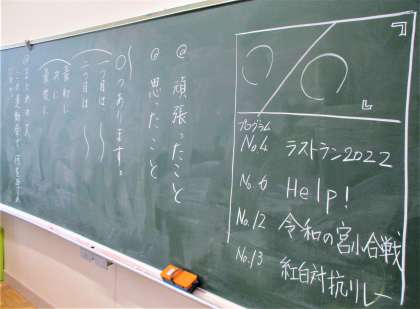 プログラム
No.4 ラストラン2022
No.6 Help!
No.12 令和の宮小合戦
No.13 紅白対抗リレー
@ 頑張ったこと
@ 思ったこと
○つあります。
一つ目は 〜
二つ目は 〜
最初に
次に
最後に
まとめの文
この運動会で、何を